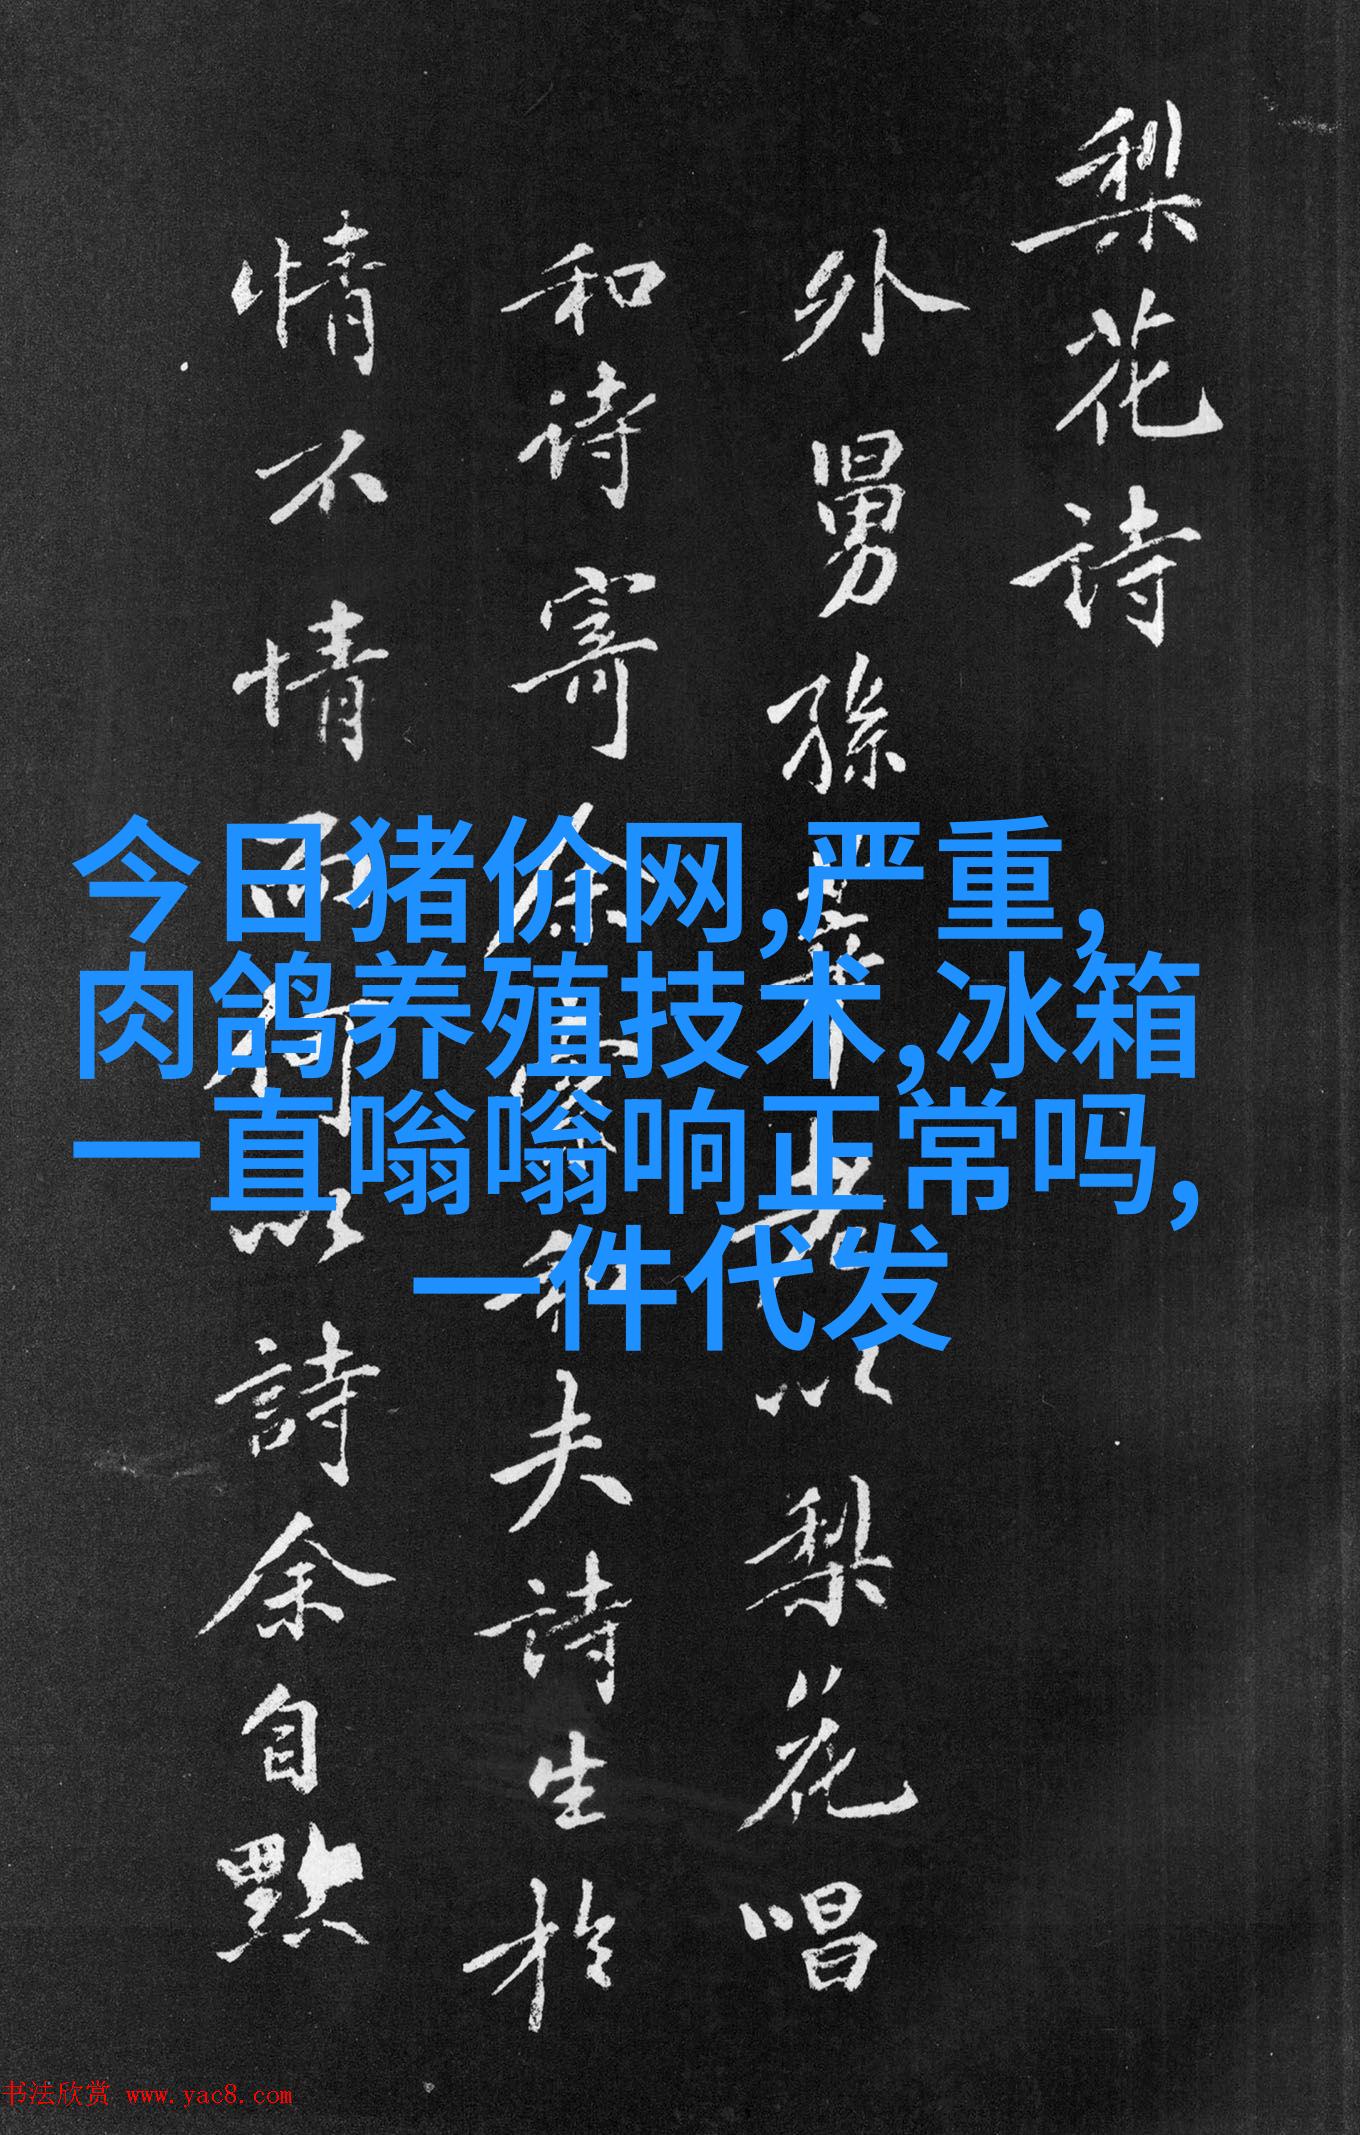 梨花詩
外舅孫莘老以梨花唱
和詩寄余夫詩生於
情不情而何以詩余自默
今日猪价网,严重,
肉鸽养殖技术,冰箱
一直嗡嗡响正常吗,
一件代发
书法欣赏 www.yac8.com